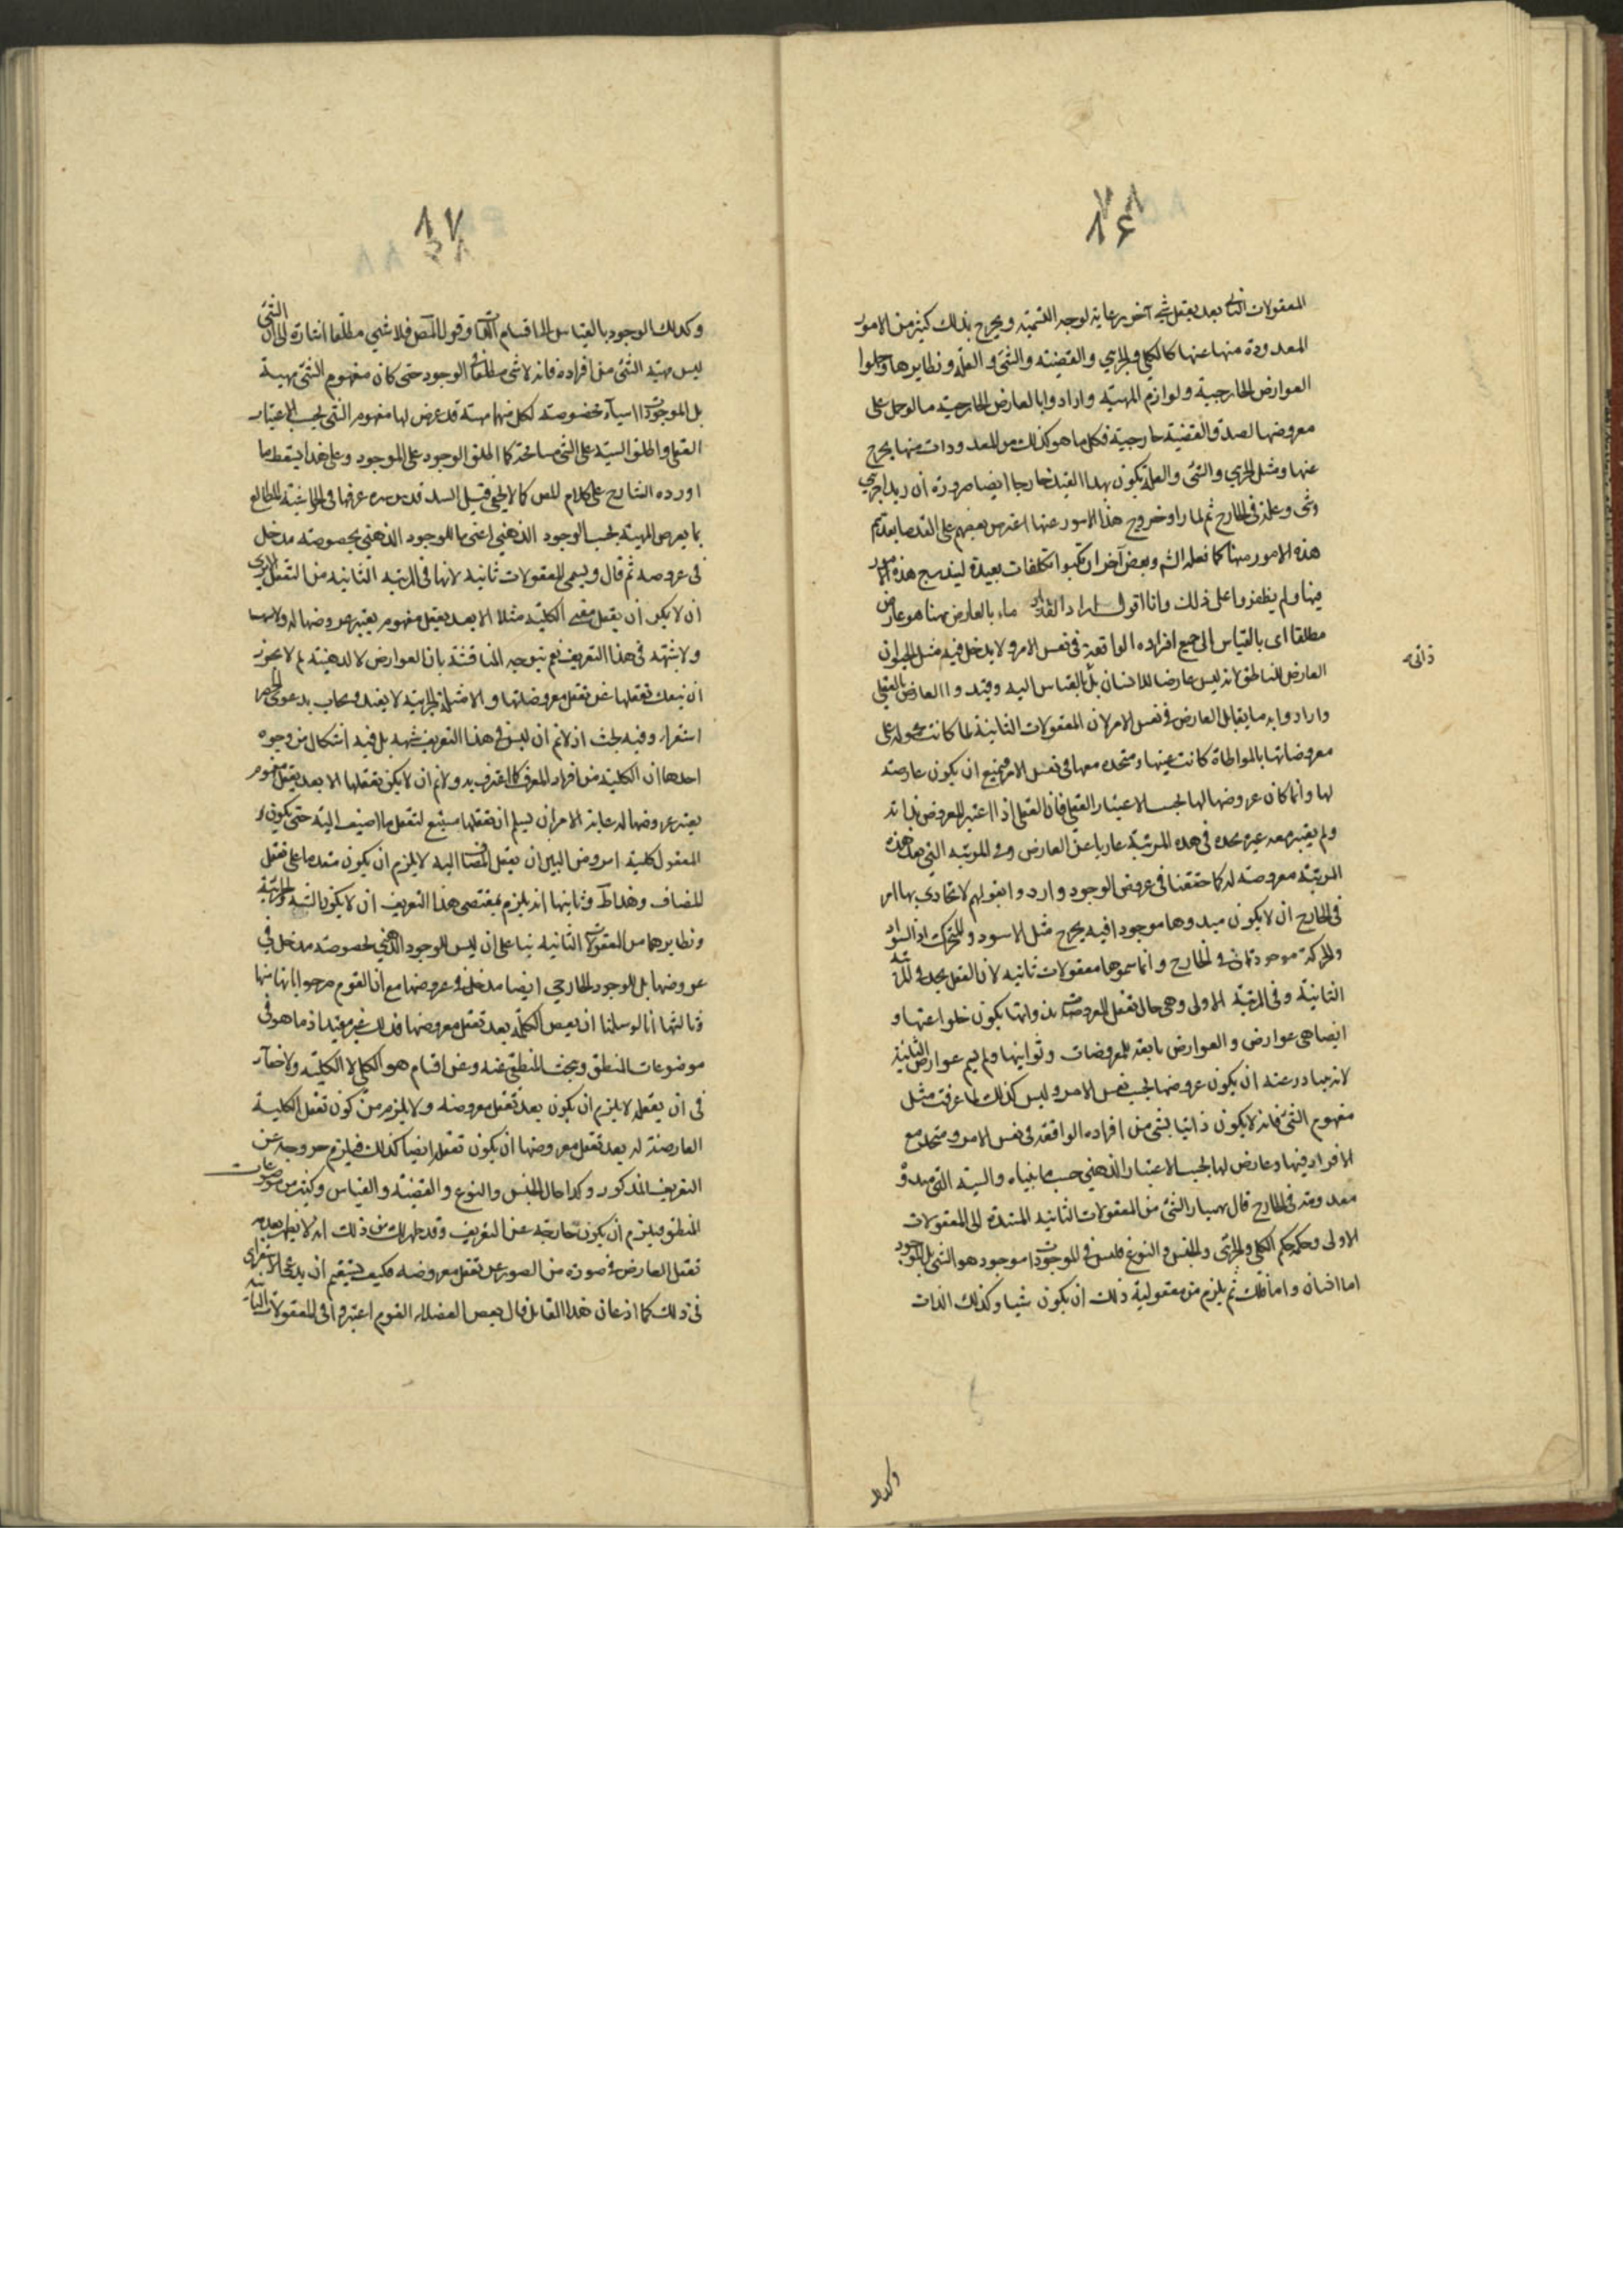 ٨٦
المعقولات الثانية بعد تعقل شيء آخر رعاية لوجه التسمية ويخرج بذلك كثير من الامور
المعدودة منها عنها كالكلي والجزئي والقضية والشيء والعلة ونظايرها وجعلوا
العوارض الخارجية ولوازم المهية وارادوا بالعارض الخارجية ما لو حمل على
معروضها لصدق القضية خارجية فكل ما هو كذلك من المعدودات منها يخرج
عنها ومثل الجزئي والشيء والعلة يكون بهذا القيد خارجا ايضا ضرورة ان زيدا جزئي
وشيء وعلة في الخارج ثم لما راوا خروج هذه الامور عنها اعترض بعضهم على القدماء بعدهم
هذه الامور منها كما فعله الش وبعض آخر ارتكبوا تكلفات بعيدة ليندرج هذه الامور
فيها ولم يظفروا على ذلك وانا اقول اراد القدماء بالعارض هنا هو عارض
مطلقا اى بالقياس الى جميع افراده الواقعة في نفس الامر ولا يدخل فيه مثل الحيوان
العارض للناطق لانه ليس عارضا للانسان بل بالقياس اليه وقيدوا العارض بالعقلي
وارادوا به ما يقابل العارض في نفس الامر لان المعقولات الثانية لما كانت محمولة على
معروضاتها بالمواطاة كانت عينها ومتحدة معها في نفس الامر فيمتنع ان يكون عارضة
لها وانما كان عروضها لها بحسب الاعتبار العقلي فان العقل اذا اعتبر المعروض بذاته
ولم يعتبر معه غيره يجده في هذه المرتبة عاريا عن العارض وفي المرتبة التي بعد هذه
المرتبة معروضة له كما حققنا في عروض الوجود وارادوا بقولهم لا يحاذي بها امر
في الخارج ان لا يكون مبدوها موجودا فيه يخرج مثل الاسود والمتحرك اذ السواد
والحركة موجودتان في الخارج وانما سموها معقولات ثانية لان العقل يجده في المرتبة
الثانية وفي المرتبة الاولى وهي حال تعقل المعروضات بذواتها يكون خلوا عنها و
ايضا هي عوارض والعوارض تابعة للمعروضات وثوانيها ولم يسم عوارض الثانية
لانه يتبادر عنه ان يكون عروضها بحسب نفس الامر وليس كذلك لما عرفت مثل
مفهوم الشيء فانه لا يكون ذاتيا بشيء من افراده الواقعة في نفس الامر ومتحد مع
الافراد فيها وعارض لها بحسب الاعتبار الذهني حسب ما بيناه والشيئية التي مبدؤه
معدومة في الخارج قال بهمنيار الشيء من المعقولات الثانية المستندة الى المعقولات
الاولى وحكمه حكم الكلي والجزئي والجنس والنوع فليس في الموجودات موجود هو الشيء بل الموجود
اما انسان واما فلك ثم يلزم من معقولية ذلك ان يكون شيا وكذلك الذات
ذاتي
وكذلك
٨٧
وكذلك الوجود بالقياس الى اقسامه انتهى وقول المص فلا شيء مطلقا اشارة الى ان الشيء
ليس مهية الشيء من افراده فانه لا شيء مطلقا في الوجود حتى كان مفهوم الشيء مهية
بل الموجودات اشياء مخصوصة لكل منها مهية قد عرض لها مفهوم الشيء بحسب الاعتبار
العقلي واطلق الشيئية على الشيء مسامحة كما اطلق الوجود على الموجود وعلى هذا يسقط ما
اورده الشارح على كلام المص كما لا يخفى قيل السيد قدس سره عرفها في الحاشية المطالع
بما يعرض المهية بحسب الوجود الذهني اعني ما للوجود الذهني بخصوصه مدخل
في عروضه ثم قال ويسمى المعقولات ثانية لانها في المرتبة الثانية من التعقل اذ لا يرى
ان لا يمكن ان يعقل معنى الكلية مثلا الا بعد تعقل مفهوم يعتبر عروضها له ولا سيما
ولا شبهة في هذا التعريف نعم يتوجه المناقشة بان العوارض الذهنية لم لا يجوز
ان ينفك تعقلها عن تعقل معروضاتها والامثلة الجزئية لا يفيد ويجاب بدعوى الحصر
استقراء وفيه بحث اذ لانم ان ليس في هذا التعريف شبهة بل فيه اشكال من وجوه
احدها ان الكلية من افراد المعرف كما اعترف به ولانم ان لا يمكن تعقلها الا بعد تعقل مفهوم
يعتبر عروضها له غاية الامر ان يسلم ان تعقلها مستتبع لتعقل ما اضيف اليه حتى يكون
المعقول كلية امر ومن البين ان تعقل المضاف اليه لا يلزم ان يكون متقدما على تعقل
المضاف وهذا ظ وثانيها انه يلزم بمقتضى هذا التعريف ان لا يكون الشيئية والجزئية
ونظايرهما من المعقولات الثانية بناء على ان ليس للوجود الذهني بخصوصه مدخل في
عروضها بل للوجود الخارجي ايضا مدخل في عروضها مع ان القوم صرحوا بانها منها
وثالثها انا لو سلمنا ان يعقل الكلية بعد تعقل معروضها فذلك غير مفيد اذ ما هو في
موضوعات المنطق ويبحث المنطقي عنه وعن اقسامه هو الكلي لا الكلية ولا خفاء
في ان تعقله لا يلزم ان يكون بعد تعقل معروضه ولا يلزم من كون تعقل الكلية
العارضة له بعد تعقل معروضها ان يكون تعقله ايضا كذلك فيلزم خروجه عن
التعريف المذكور وكذا حال الجنس والنوع والقضية والقياس وكثير من موضوعات
المنطق فيلزم ان يكون خارجة عن التعريف وقد ظهر لك من ذلك انه لا يظهر بعدية
تعقل العارض في صورة من الصور عن تعقل معروضه فكيف يستقيم ان يدعى الاستقراء
في ذلك كما اذعان هذا القائل قال بعض الفضلاء القوم اعتبروا في المعقولات الثانية